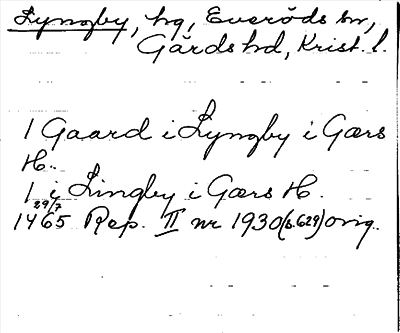 Lyngby, hg, Everöds sn,
Gärds hd, Krist. l.
1 Gaard i Lyngby i Gærs
H.
1 i Lingby i Gærs H.
29/7
1465 Rep. II nr 1930 (s. 629) orig.